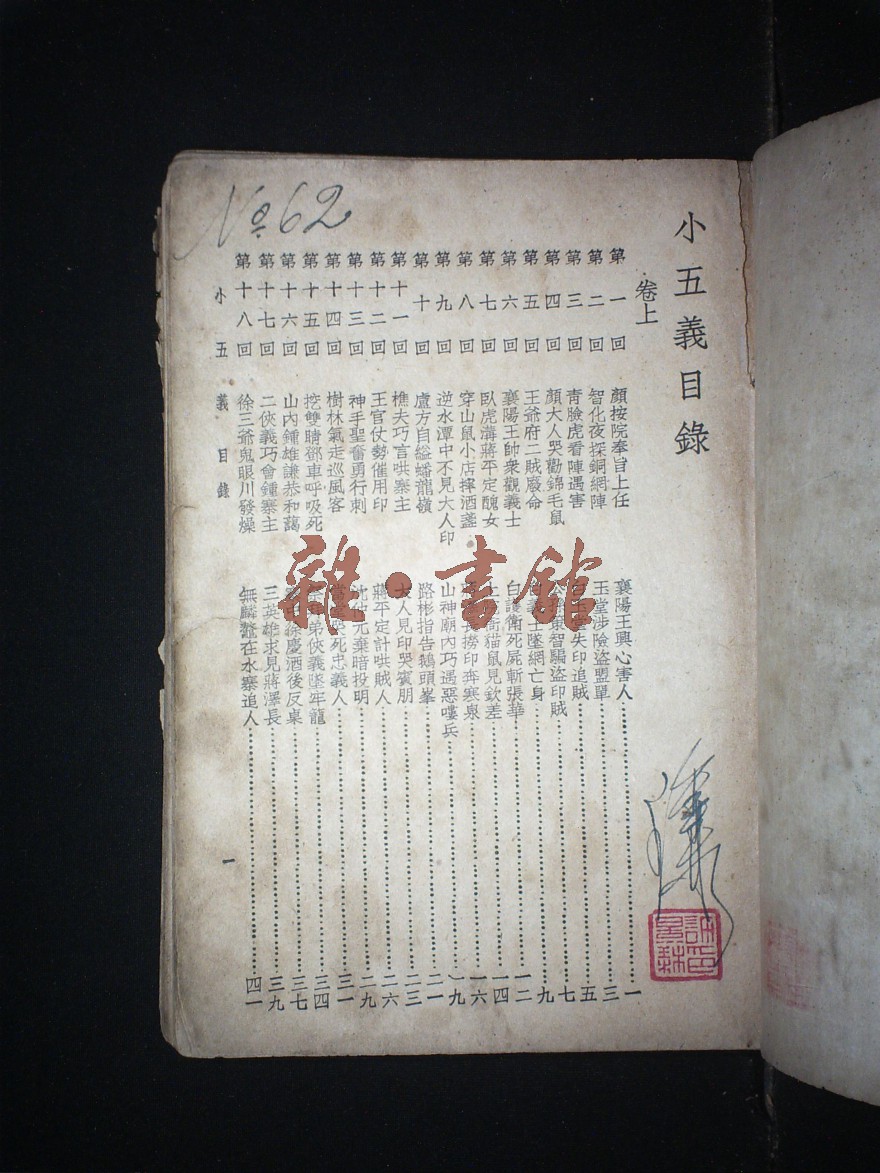 No. 62
小五義目錄
卷上
第一回 顏按院奉旨上任 襄陽王興心害人 一
第二回 智化夜探銅網陣 玉堂涉險盜盟單 三
第三回 青臉虎看陣遇害 白玉堂失印追賊 五
第四回 顏大人哭勸錦毛鼠 公孫策智騙盜印賊 七
第五回 王爺府二賊廢命 義士墜網亡身 九
第六回 襄陽王帥衆觀義士 白護衛死屍斬張華 一二
第七回 臥虎溝蔣平定醜女 上院衙貓鼠見欽差 一四
第八回 穿山鼠小店摔酒盞 撈印奔寒泉 一六
第九回 逆水潭中不見大人印 山神廟內巧遇惡嘍兵 一九
第十回 盧方自縊蟠龍嶺 路彬指告鵝頭峯 二一
第十一回 樵夫巧言哄寨主 大人見印哭賓朋 二三
第十二回 王官仗勢催用印 蔣平定計哄賊人 二六
第十三回 神手聖奮勇行刺 沈仲元棄暗投明 二九
第十四回 樹林氣走巡風客 當堂哭死忠義人 三一
第十五回 挖雙睛鄧車呼吸死 弟俠義墜牢龍 三四
第十六回 山內鍾雄謙恭和藹 徐慶酒後反桌 三七
第十七回 二俠義巧會鍾寨主 三英雄求見蔣澤長 三九
第十八回 徐三爺鬼眼川發燥 無鱗鰲在水寨追人 四一
小五義目錄
一
雜·書館